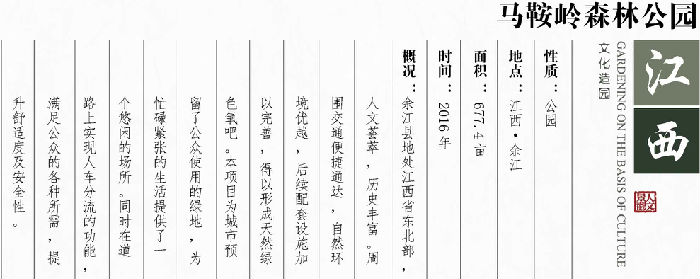 马鞍岭森林公园
江西
GARDENING ON THE BASIS OF CULTURE
文化造园
性质：公园
地点：江西·余江
面积：677.4亩
时间：2016年
概况：余江县地处江西省东北部，
人文荟萃，历史丰富。周
围交通便捷通达，自然环
境优越，后续配套设施加
以完善，得以形成天然绿
色氧吧。本项目为城市预
留了公众使用的绿地，为
忙碌紧张的生活提供了一
个悠闲的场所。同时在道
路上实现人车分流的功能，
满足公众的各种所需，提
升舒适度及安全性。